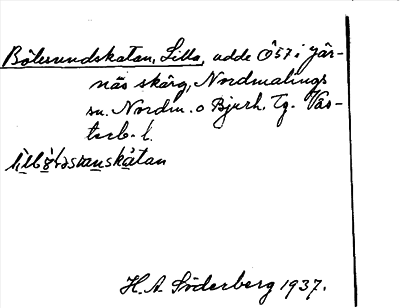 Bölesundskatan, Lilla, udde Ö 57 i Jär-
näs skärg, Nordmalings
sn. Nordm. o Bjurh. Tg. Väs-
terb. l.
H. A. Söderberg 1937.